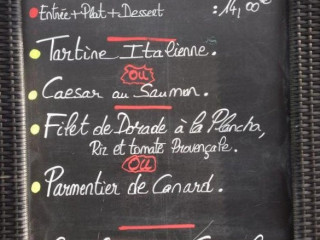 Entrée + Plat + Dessert : 14,00€
Tartine Italienne.
OU
Caesar au Saumon.
Filet de Dorade à la Plancha,
Riz et tomate Provençale.
OU
Parmentier de Canard.